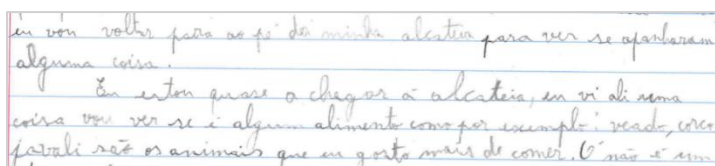 eu vou voltar para ao pé da minha alcateia para ver se apanharam
alguma coisa.
Eu estou quase a chegar à alcateia, eu vi ali uma
coisa vou ver se é algum alimento como por exemplo: veado, corço
javali são os animais que eu gosto mais de comer. O não é um